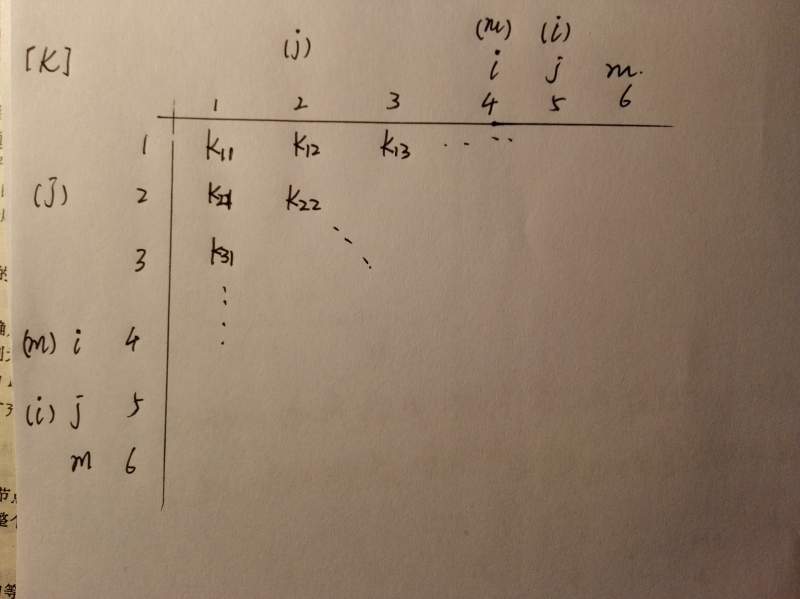 [K] (j) (m) (i)
i j m.
1 2 3 4 5 6
1 K11 K12 K13 ....
(j) 2 K21 K22
3 K31
(m) i 4
(i) j 5
m 6
节
整个
等